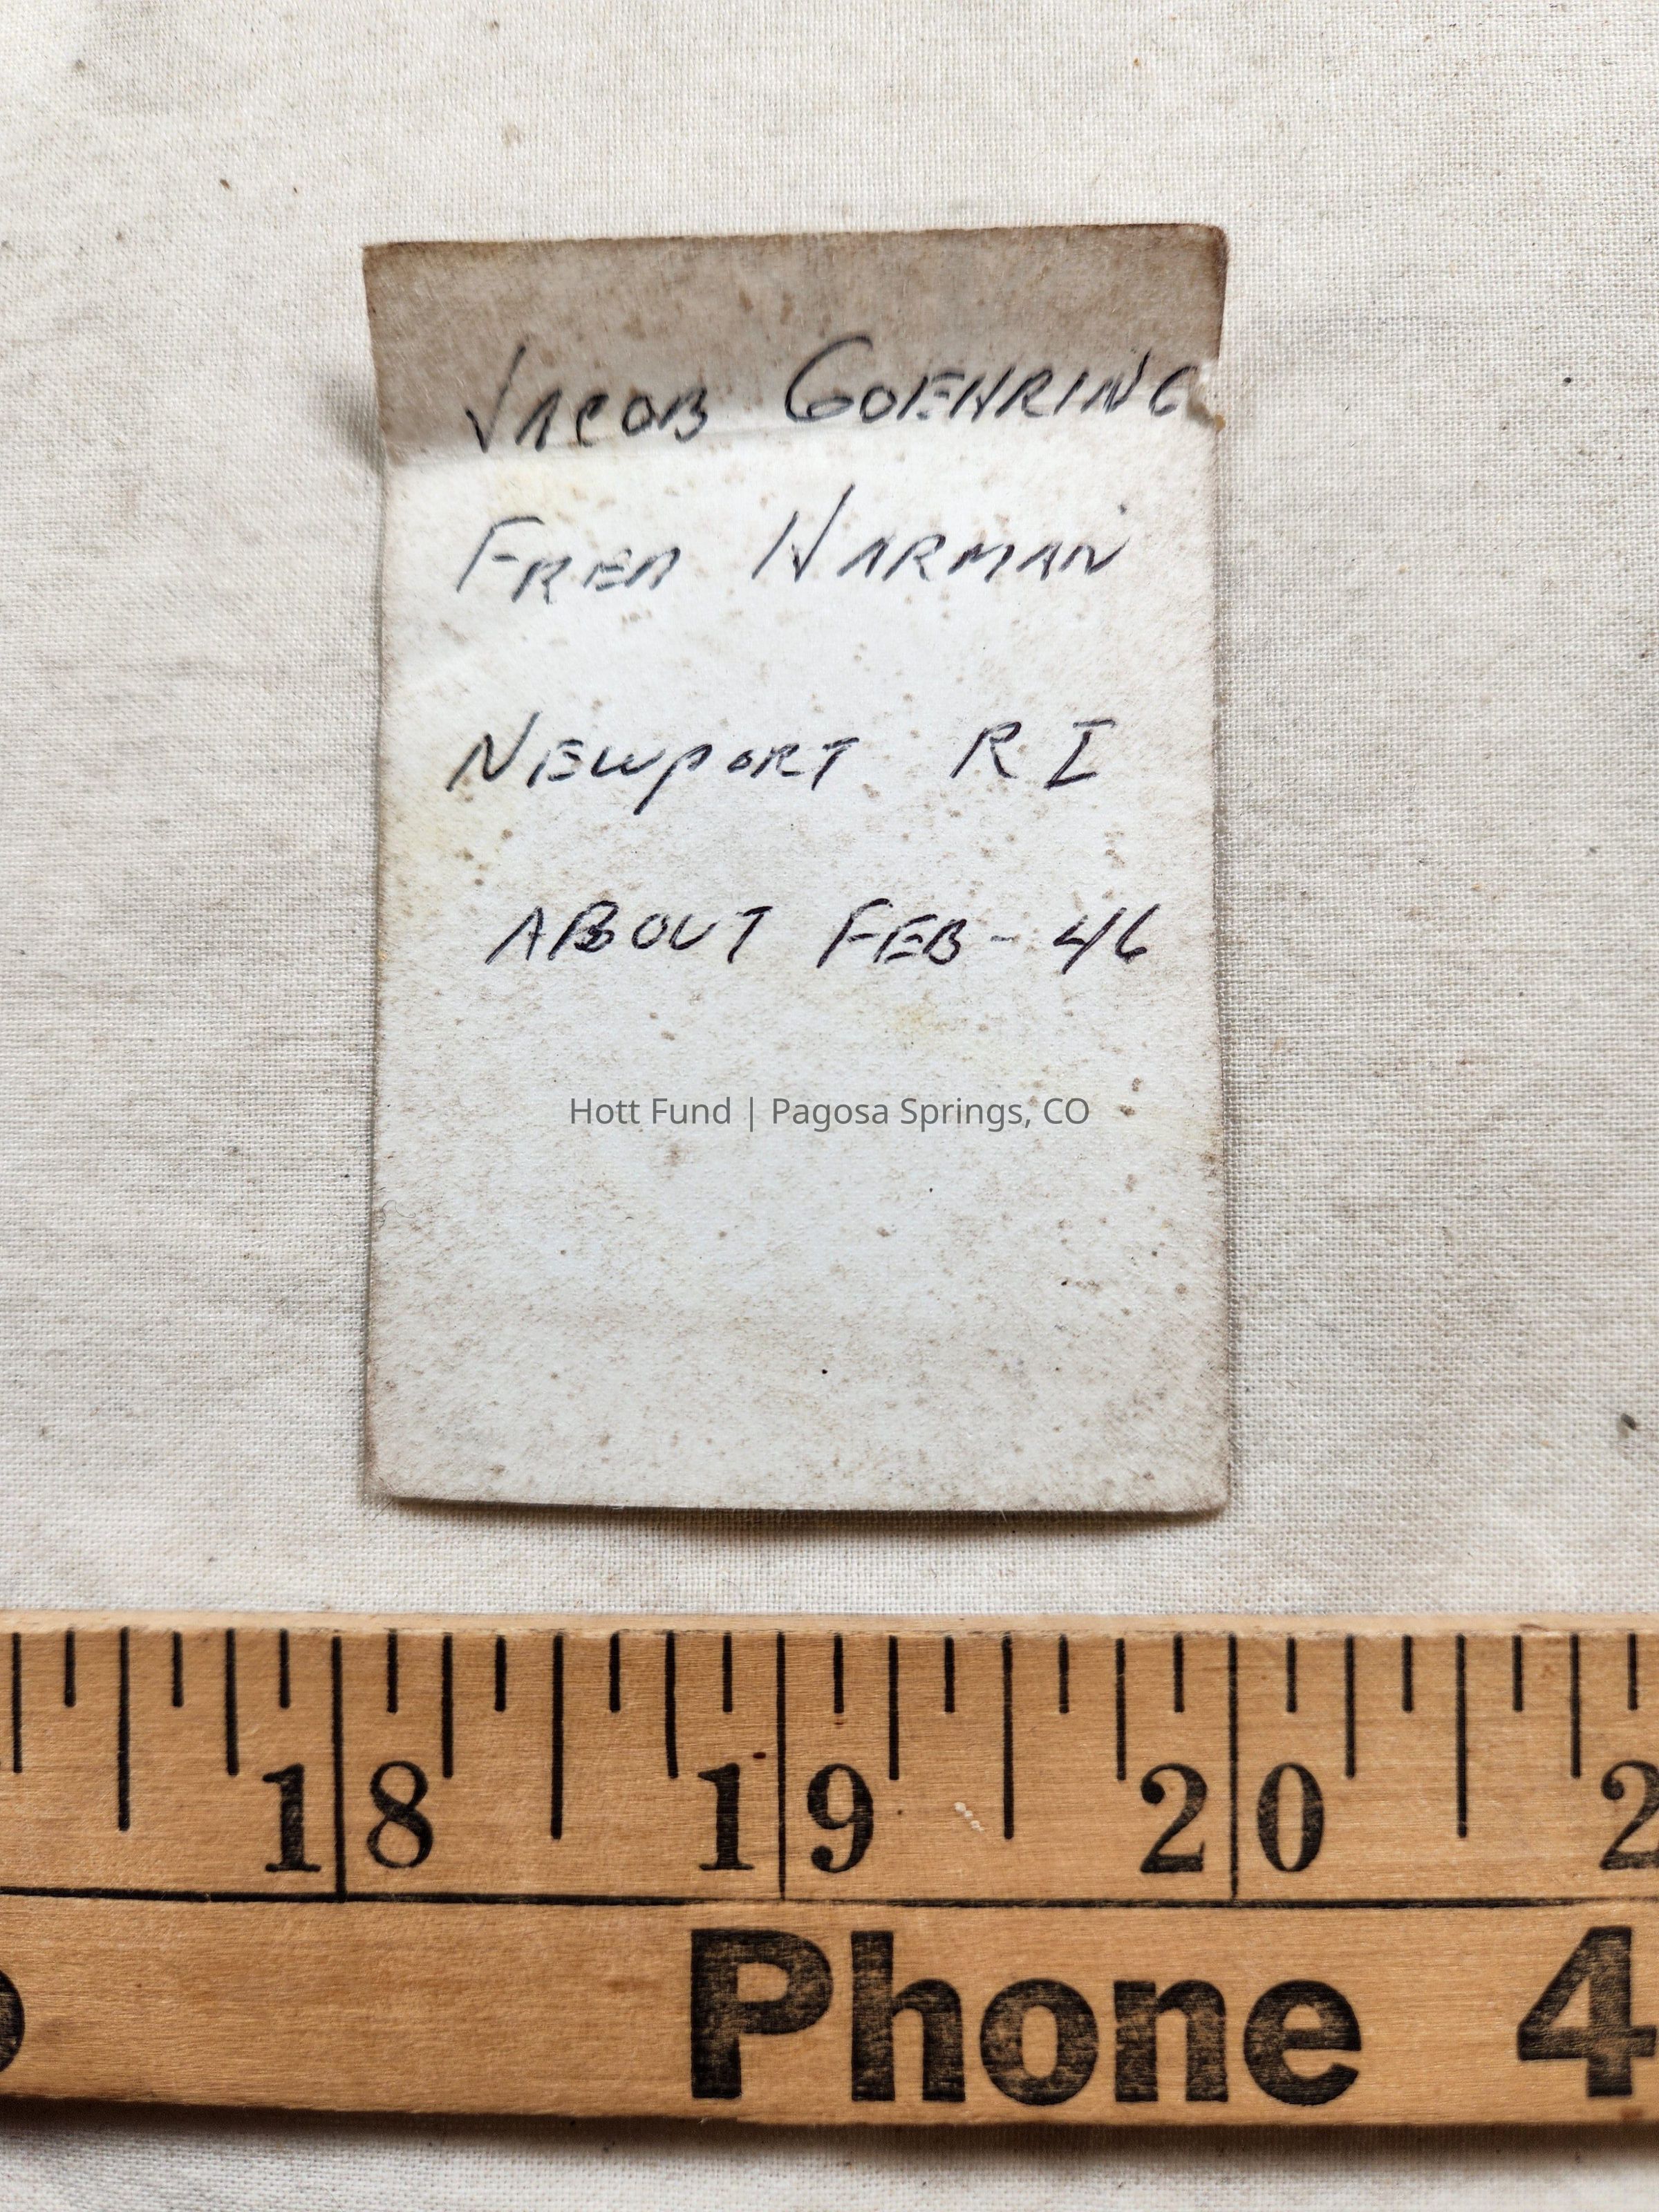 JACOB GOEHRING
FRED HARMAN
NEWPORT R I
ABOUT FEB - 46
Hott Fund | Pagosa Springs, CO
18 19 20 2
Phone 4